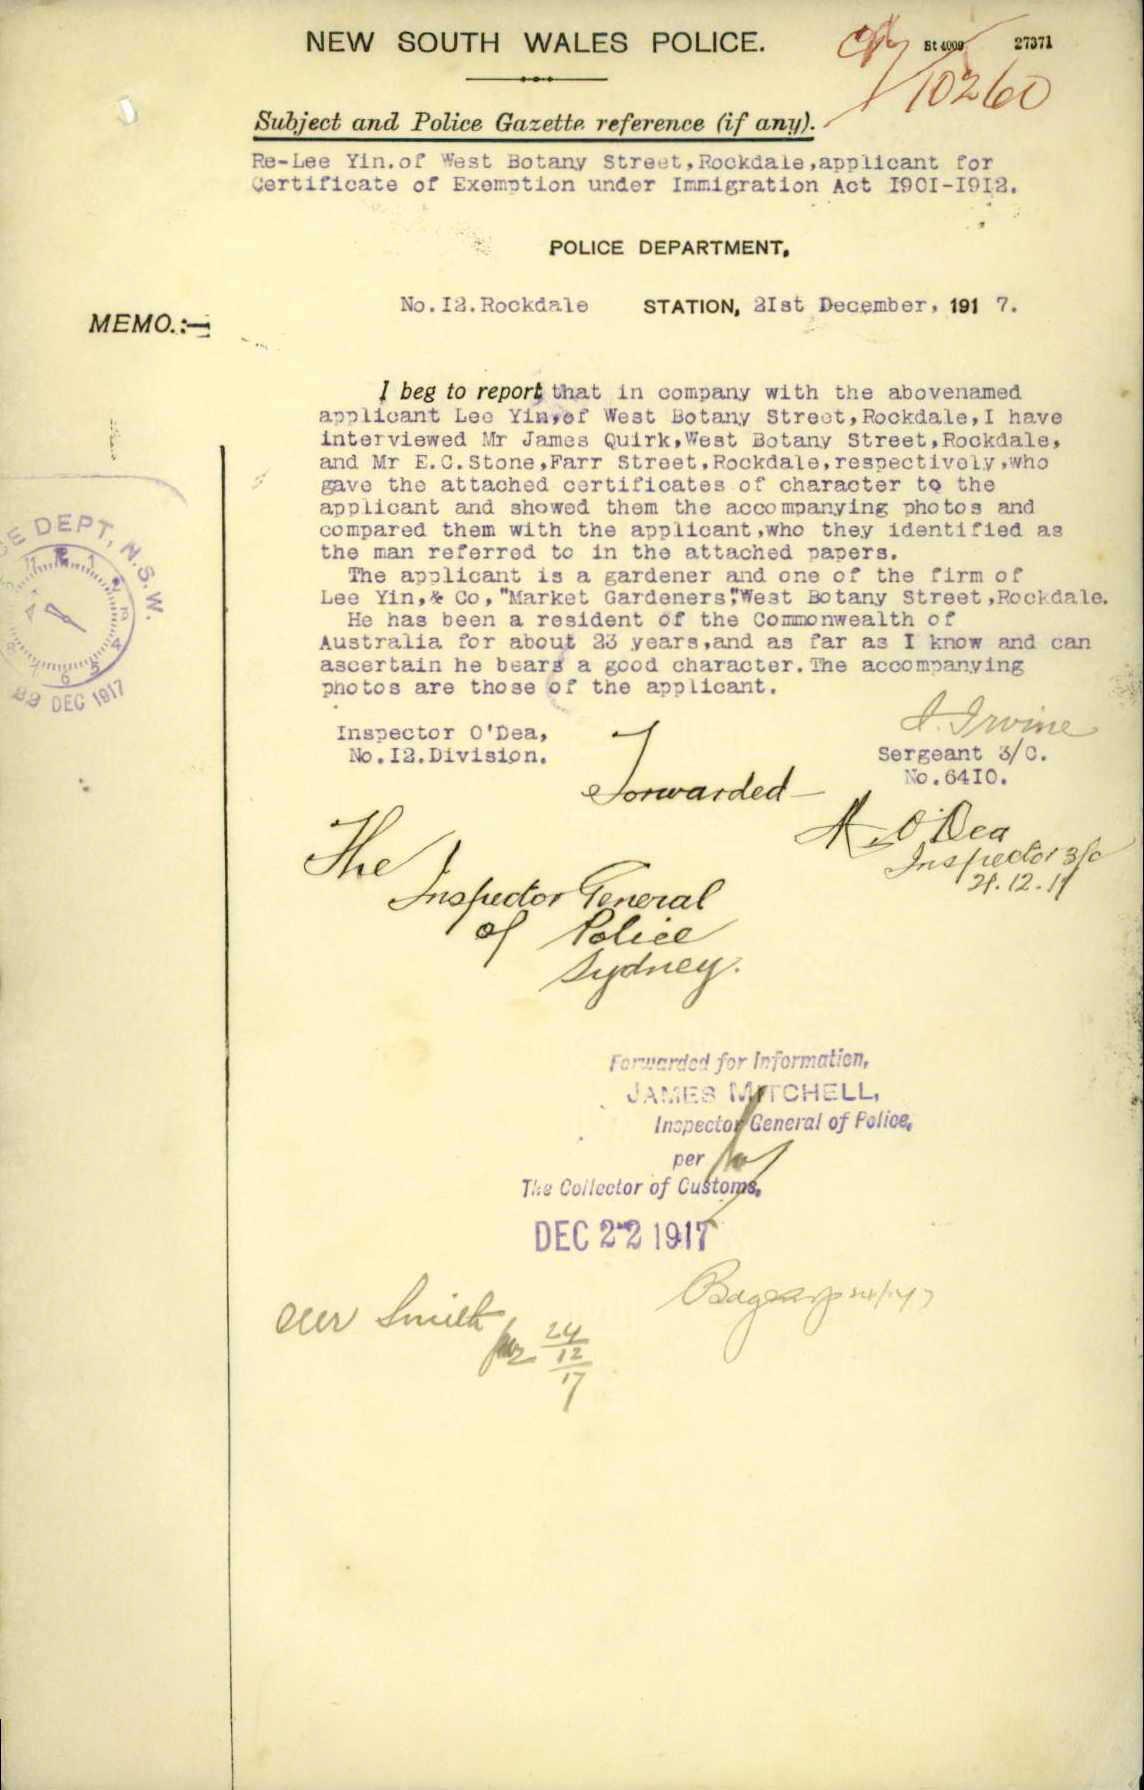 NEW SOUTH WALES POLICE.
St 4000 27371
10260
Subject and Police Gazette reference (if any).
Re-Lee Yin.of West Botany Street,Rockdale,applicant for
Certificate of Exemption under Immigration Act I90I-I9I2.
POLICE DEPARTMENT,
No.I2.Rockdale STATION, 2Ist December, 191 7.
MEMO.:—
I beg to report that in company with the abovenamed
applicant Lee Yin,of West Botany Street,Rockdale,I have
interviewed Mr James Quirk,West Botany Street,Rockdale,
and Mr E.C.Stone,Farr Street,Rockdale,respectively,who
gave the attached certificates of character to the
applicant and showed them the accompanying photos and
compared them with the applicant,who they identified as
the man referred to in the attached papers.
The applicant is a gardener and one of the firm of
Lee Yin,& Co,"Market Gardeners",West Botany Street,Rockdale.
He has been a resident of the Commonwealth of
Australia for about 23 years,and as far as I know and can
ascertain he bears a good character.The accompanying
photos are those of the applicant.
DEPT, N.S.W.
22 DEC 1917
Inspector O'Dea,
No.I2.Division.
Irvine
Sergeant 3/C.
No.64I0.
Forwarded
O'Dea
Inspector 3/c
21.12.17
The
Inspector General
of Police
Sydney.
Forwarded for Information,
JAMES MITCHELL,
Inspector General of Police,
per
The Collector of Customs,
DEC 22 1917
Mr Smith
24
12
17